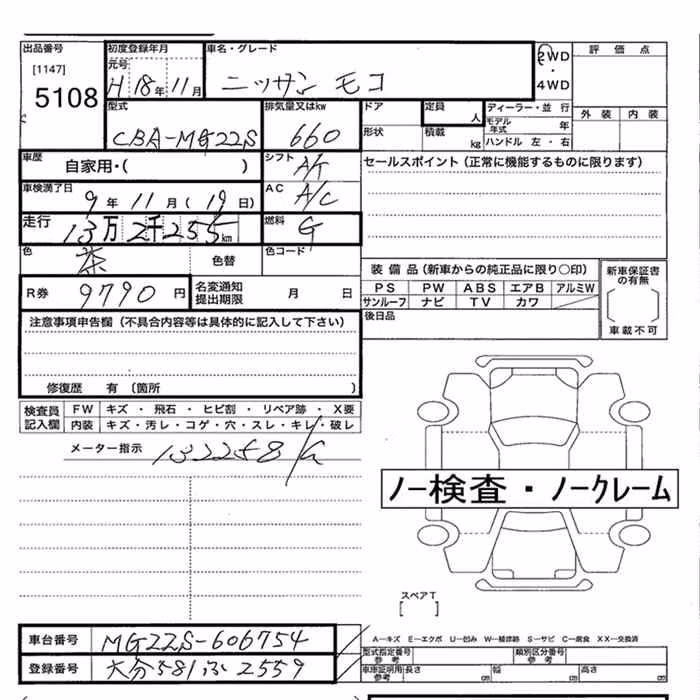 出品番号 初度登録年月 車名・グレード 2WD 評価点
[1147] 元号 ・
5108 H18年11月 ニッサン モコ 4WD 外装 内装
型式 排気量又はkw ドア 定員 人 ディーラー・並行
CBA-MG22S 660 形状 積載 kg モデル年式 年
ハンドル 左・右
車歴 自家用・( ) シフト AT セールスポイント(正常に機能するものに限ります)
車検満了日 9年11月(19日) AC A/C
走行 13万2千255km 燃料 G
色 茶 色替 色コード 装備品(新車からの純正品に限り○印) 新車保証書の有無
PS PW ABS エアB アルミW
R券 9790円 名変通知提出期限 月 日 サンルーフ ナビ TV カワ 車載不可
後日品
注意事項申告欄(不具合内容等は具体的に記入して下さい)
修復歴 有(箇所 )
検査員記入欄 FW キズ・飛石・ヒビ割・リペア跡・X要
内装 キズ・汚レ・コゲ・穴・スレ・キレ・破レ
メーター指示 132258/G
ノー検査・ノークレーム
スペアT
[ ]
車台番号 MG22S-606754 A―キズ E―エクボ U―凹み W―補修跡 S―サビ C―腐食 XX―交換済
型式指定番号 参考 類別区分番号 参考
登録番号 大分581ふ2559 車庫証明用参考 長さ 幅 高さ